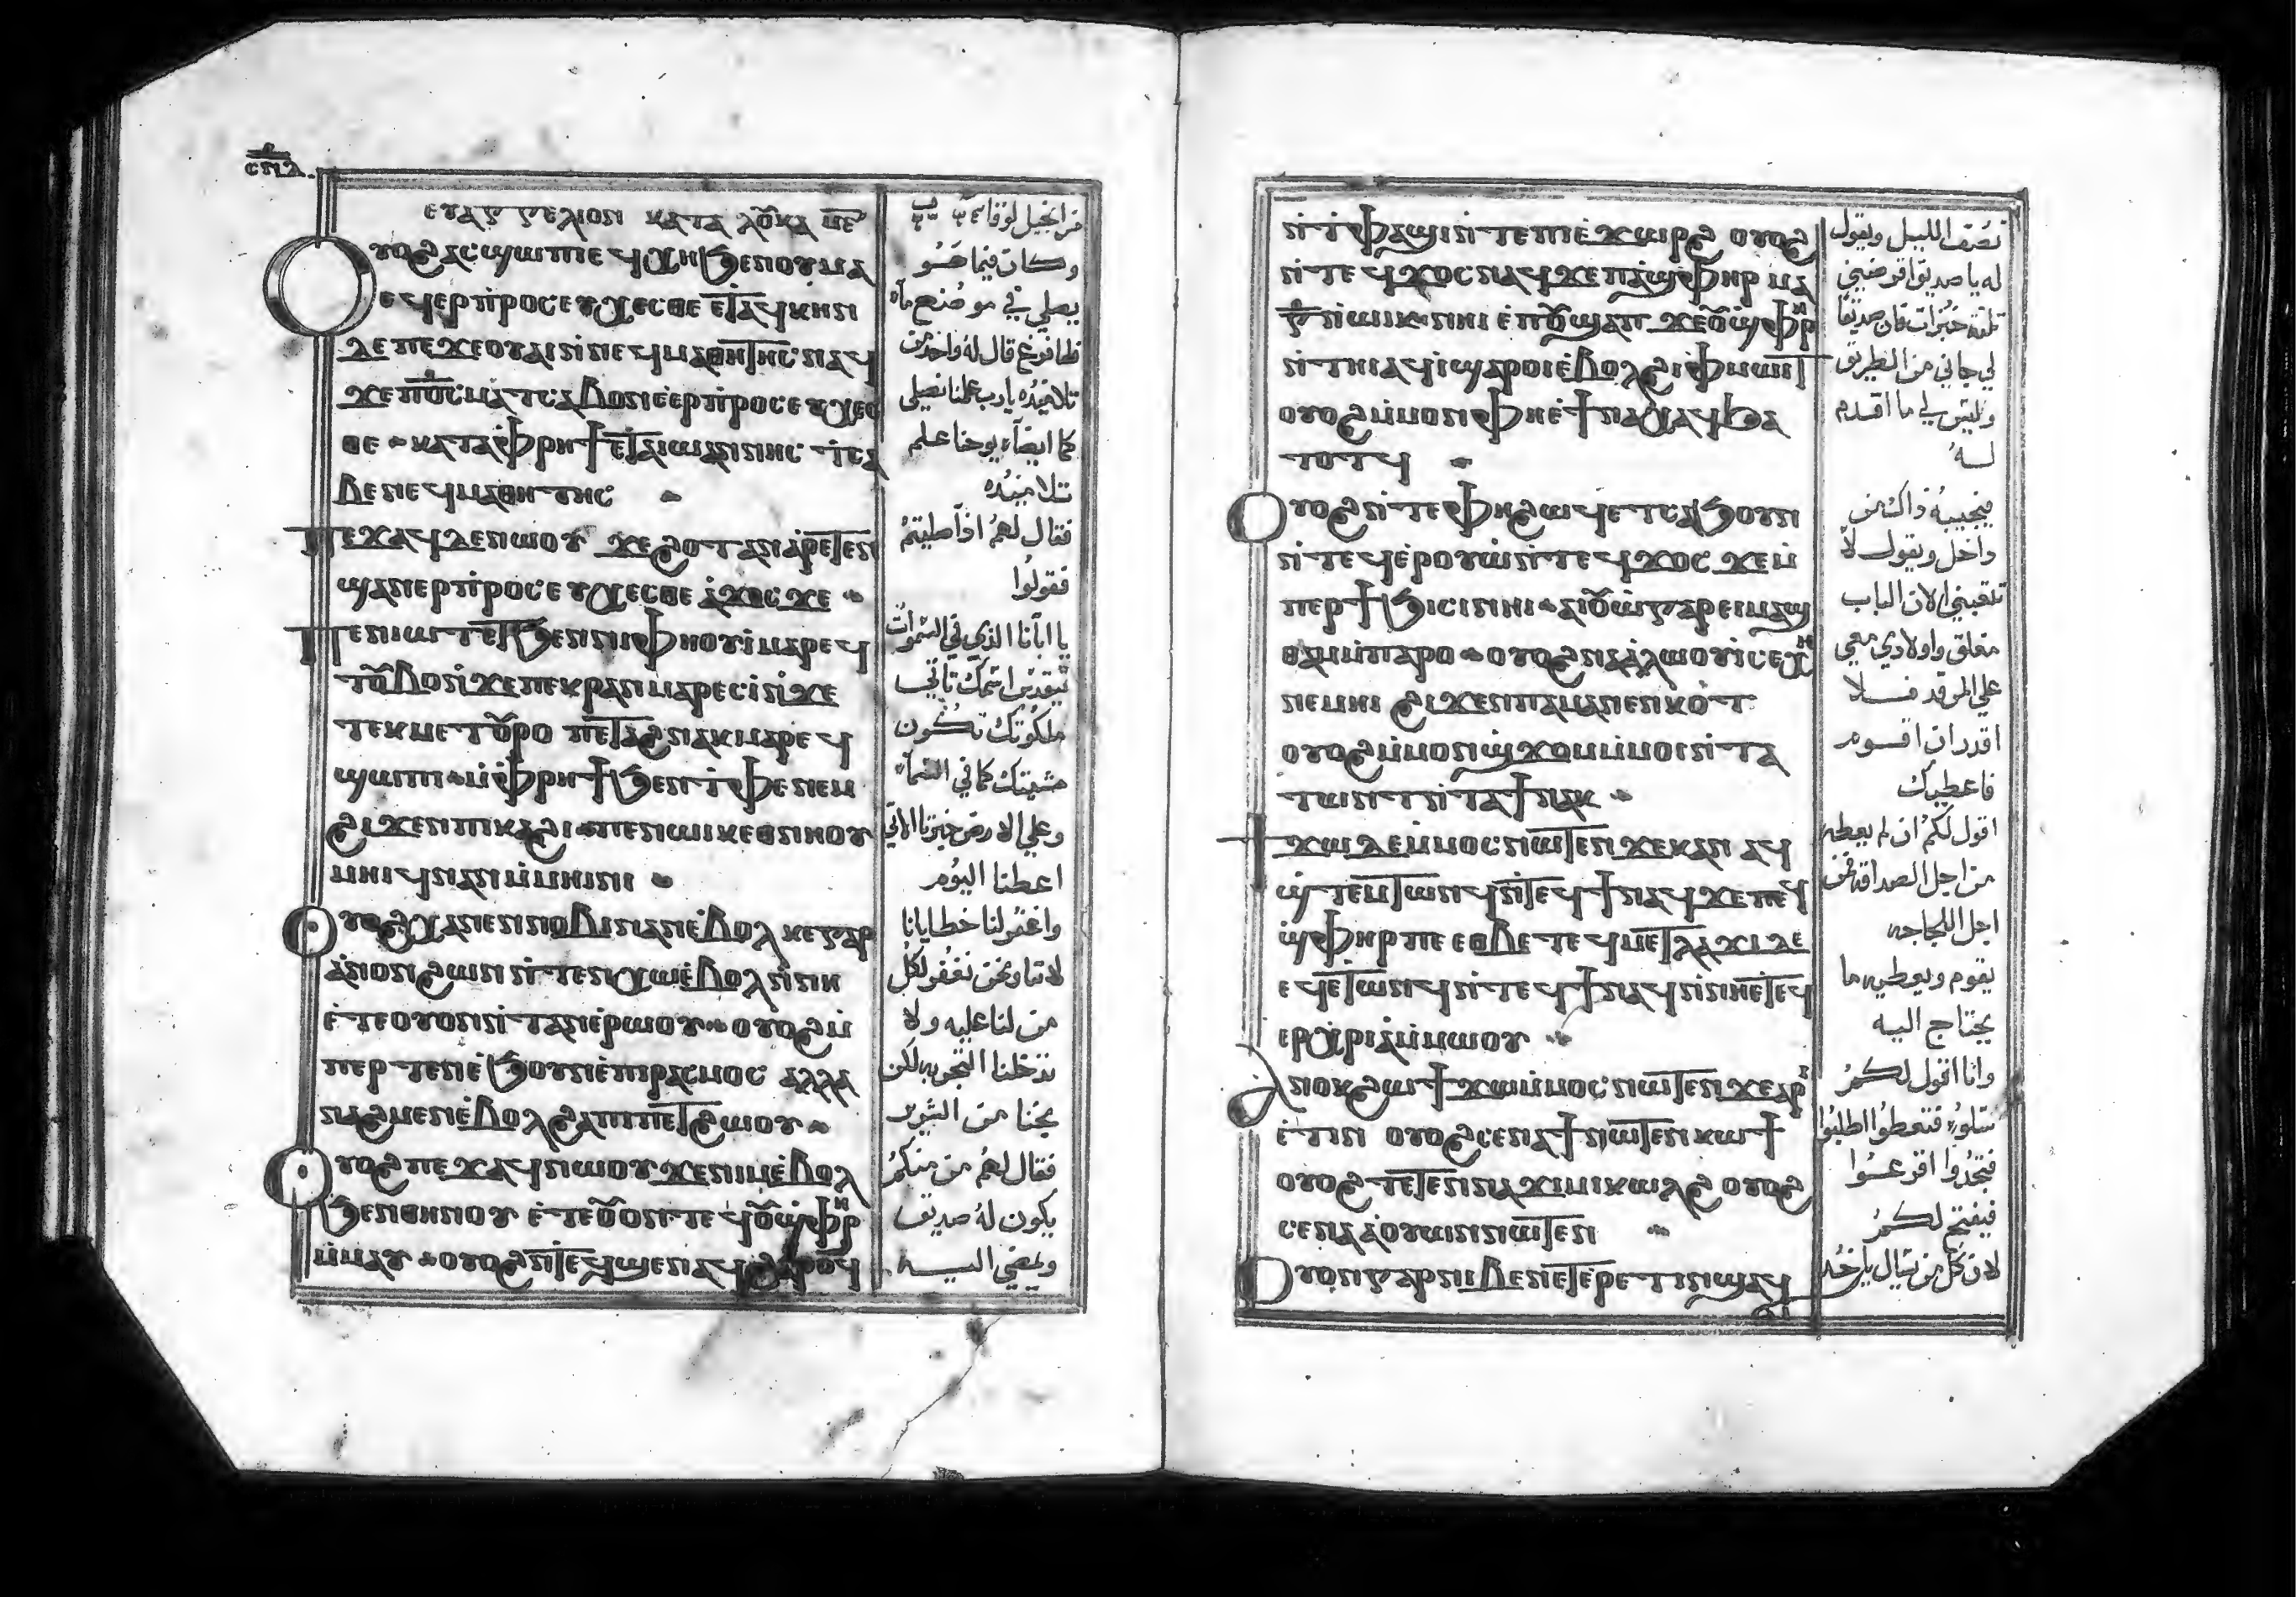 ⲥⲛⲁ
ⲉⲩⲁⲅⲅⲉⲗⲓⲟⲛ ⲕⲁⲧⲁ ⲗⲟⲩⲕⲁ
ⲟⲩⲟϩ ⲁⲥϣⲱⲡⲓ ⲉϥⲭⲏ ϧⲉⲛ ⲟⲩⲙⲁ
ⲉϥⲉⲣⲡⲣⲟⲥⲉⲩⲭⲉⲥⲑⲉ ⲉⲧⲁϥⲕⲏⲛ
ⲇⲉ ⲡⲉϫⲉ ⲟⲩⲁⲓ ⲛⲛⲉϥⲙⲁⲑⲏⲧⲏⲥ ⲛⲁϥ
ϫⲉ ⲡⲟⲥ ⲙⲁⲧⲥⲁⲃⲟⲛ ⲉⲉⲣⲡⲣⲟⲥⲉⲩⲭⲉⲥ
ⲑⲉ ⲕⲁⲧⲁ ⲫⲣⲏϯ ⲉⲧⲁ ⲓⲱⲁⲛⲛⲏⲥ ⲧⲥⲁ
ⲃⲉ ⲛⲉϥⲙⲁⲑⲏⲧⲏⲥ
ⲡⲉϫⲁϥ ⲇⲉ ⲛⲱⲟⲩ ϫⲉ ϩⲟⲧⲁⲛ ⲁⲣⲉⲧⲉⲛ
ϣⲁⲛⲉⲣⲡⲣⲟⲥⲉⲩⲭⲉⲥⲑⲉ ⲁϫⲟⲥ ϫⲉ
ⲡⲉⲛⲓⲱⲧ ⲉⲧϧⲉⲛ ⲛⲓⲫⲏⲟⲩⲓ ⲙⲁⲣⲉϥ
ⲧⲟⲩⲃⲟ ⲛϫⲉ ⲡⲉⲕⲣⲁⲛ ⲙⲁⲣⲉⲥⲓ ⲛϫⲉ
ⲧⲉⲕⲙⲉⲧⲟⲩⲣⲟ ⲡⲉⲧⲉϩⲛⲁⲕ ⲙⲁⲣⲉϥ
ϣⲱⲡⲓ ⲙⲫⲣⲏϯ ϧⲉⲛ ⲧⲫⲉ ⲛⲉⲙ
ϩⲓϫⲉⲛ ⲡⲓⲕⲁϩⲓ ⲡⲉⲛⲱⲓⲕ ⲉⲑⲛⲏⲟⲩ
ⲙⲏⲓϥ ⲛⲁⲛ ⲙⲙⲏⲛⲓ
ⲟⲩⲟϩ ⲭⲁ ⲛⲉⲛⲛⲟⲃⲓ ⲛⲁⲛ ⲉⲃⲟⲗ ⲕⲉ ⲅⲁⲣ
ⲁⲛⲟⲛ ϩⲱⲛ ⲛⲧⲉⲛⲭⲱ ⲉⲃⲟⲗ ⲛⲛⲏ
ⲉⲧⲉ ⲟⲩⲟⲛ ⲛⲧⲁⲛ ⲉⲣⲱⲟⲩ ⲟⲩⲟϩ ⲙ
ⲡⲉⲣⲧⲉⲛ ⲉϧⲟⲩⲛ ⲉⲡⲓⲣⲁⲥⲙⲟⲥ ⲁⲗⲗⲁ
ⲛⲁϩⲙⲉⲛ ⲉⲃⲟⲗ ϩⲁ ⲡⲓⲡⲉⲧϩⲱⲟⲩ
ⲟⲩⲟϩ ⲡⲉϫⲁϥ ⲛⲱⲟⲩ ϫⲉ ⲛⲓⲙ ⲉⲃⲟⲗ
ϧⲉⲛ ⲑⲏⲛⲟⲩ ⲉⲧⲉ ⲟⲩⲟⲛⲧⲉϥ ⲟⲩϣⲫⲏⲣ
ⲙⲙⲁⲩ ⲟⲩⲟϩ ⲛⲧⲉϥϣⲉⲛⲁϥ ϩⲁⲣⲟϥ
من انجيل لوقا
وكان فيما هو
يصلي في موضع ما
فلما فرغ قال له واحد من
تلاميذه يا رب علمنا نصلي
كما ايضا يوحنا علم
تلاميذه
فقال لهم اذا صليتم
فقولوا
يا ابانا الذي في السموات
يتقدس اسمك تاتي
ملكوتك تكون
مشيتك كما في السماء
وعلي الارض خبزنا الاتي
اعطنا اليوم
واغفر لنا خطايانا
لاننا ونحن نغفر لكل
من لنا عليه ولا
تدخلنا التجربه لكن
نجنا من الشرير
فقال لهم من منكم
يكون له صديق
ويمضي اليه
ⲛⲧⲫⲁϣⲓ ⲛⲧⲉ ⲡⲓⲉϫⲱⲣϩ ⲟⲩⲟϩ
ⲛⲧⲉϥϫⲟⲥ ⲛⲁϥ ϫⲉ ⲡⲁϣⲫⲏⲣ ⲙⲁ
ⲅ ⲛⲱⲓⲕ ⲛⲏⲓ ⲉⲡⲟⲩϣⲁⲡ ϫⲉ ⲟⲩϣⲫⲏⲣ
ⲛⲧⲏⲓ ⲁϥⲓ ϣⲁⲣⲟⲓ ⲉⲃⲟⲗ ϩⲓ ⲫⲙⲱⲓⲧ
ⲟⲩⲟϩ ⲙⲙⲟⲛ ⲫⲏ ⲉϯⲛⲁⲭⲁϥ ϧⲁ
ⲧⲟⲧϥ
ⲟⲩⲟϩ ⲛⲧⲉ ⲫⲏ ϩⲱϥ ⲉⲧⲥⲁϧⲟⲩⲛ
ⲛⲧⲉϥⲉⲣⲟⲩⲱ ⲛⲧⲉϥϫⲟⲥ ϫⲉ ⲙ
ⲡⲉⲣϯϧⲓⲥⲓ ⲛⲏⲓ ⲁⲓⲟⲩⲱ ⲅⲁⲣ ⲉⲓⲙⲁϣ
ⲑⲁⲙ ⲙⲡⲁⲣⲟ ⲟⲩⲟϩ ⲛⲁⲁⲗⲱⲟⲩⲓ ⲥⲉⲭⲏ
ⲛⲉⲙⲏⲓ ϩⲓϫⲉⲛ ⲡⲁⲙⲁⲛⲉⲛⲕⲟⲧ
ⲟⲩⲟϩ ⲙⲙⲟⲛ ϣϫⲟⲙ ⲙⲙⲟⲓ ⲛⲧⲁ
ⲧⲱⲛⲧ ⲛⲧⲁϯ ⲛⲁⲕ
ϯϫⲱ ⲇⲉ ⲙⲙⲟⲥ ⲛⲱⲧⲉⲛ ϫⲉ ⲕⲁⲛ ⲁϥ
ϣⲧⲉⲙⲧⲱⲛϥ ⲛⲧⲉϥϯ ⲛⲁϥ ϫⲉ ⲡⲉϥ
ϣⲫⲏⲣ ⲡⲉ ⲉⲑⲃⲉ ⲧⲉϥⲙⲉⲧⲗⲁϫⲓ ⲇⲉ
ⲉϥⲉⲧⲱⲛϥ ⲛⲧⲉϥϯ ⲛⲁϥ ⲛⲛⲏ ⲉⲧⲉϥ
ⲉⲣⲭⲣⲓⲁ ⲙⲙⲱⲟⲩ
ⲁⲛⲟⲕ ϩⲱ ϯϫⲱ ⲙⲙⲟⲥ ⲛⲱⲧⲉⲛ ϫⲉ ⲁⲣⲓ
ⲉⲧⲓⲛ ⲟⲩⲟϩ ⲥⲉⲛⲁϯ ⲛⲱⲧⲉⲛ ⲕⲱϯ
ⲟⲩⲟϩ ⲧⲉⲧⲉⲛⲛⲁϫⲓⲙⲓ ⲕⲱⲗϩ ⲟⲩⲟϩ
ⲥⲉⲛⲁⲁⲟⲩⲱⲛ ⲛⲱⲧⲉⲛ
ⲟⲩⲟⲛ ⲅⲁⲣ ⲛⲓⲃⲉⲛ ⲉⲧⲉⲣⲉⲧⲓⲛ ϣⲁϥ
ϭⲓ
نصف الليل ويقول
له يا صديق اقرضني
ثلثة خبزات فان صديقا
لي جاني من الطريق
وليس لي ما اقدم
له
فيجيبه ذاك من
داخل ويقول لا
تتعبني لان الباب
مغلق واولادي معي
علي المرقد فلا
اقدر ان اقوم
فاعطيك
اقول لكم ان لم يعطه
من اجل الصداقه فمن
اجل اللجاجه
يقوم ويعطيه ما
يحتاج اليه
وانا اقول لكم
سلوا فتعطوا اطلبوا
فتجدوا اقرعوا
فيفتح لكم
لان كل من يسال ياخذ